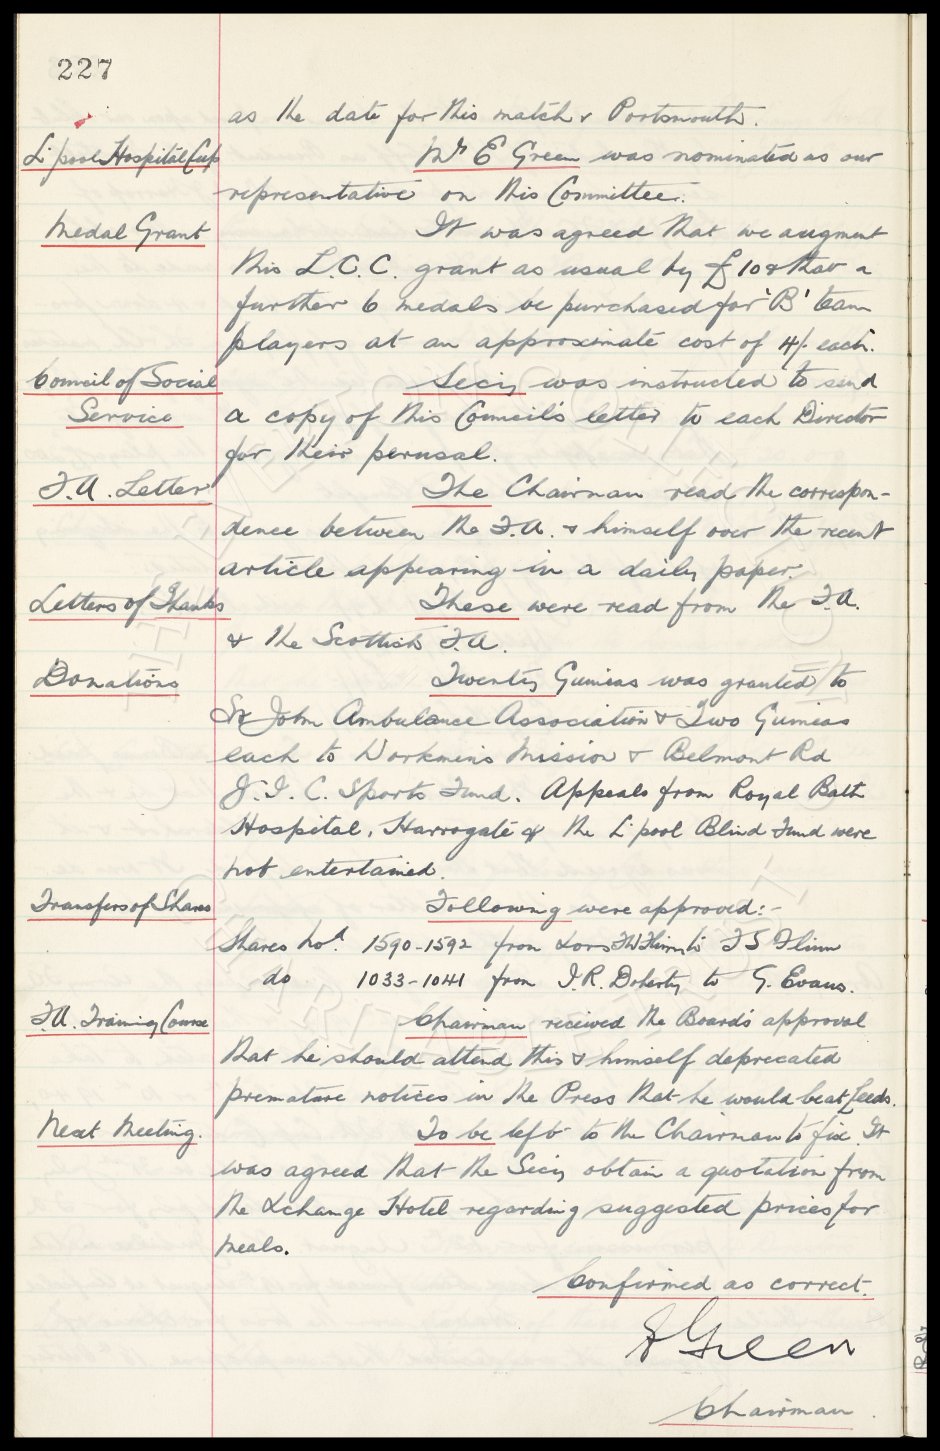 227
as the date for this match v Portsmouth.
L'pool Hospital Cup
Mr E Green was nominated as our
representative on this Committee.
Medal Grant
It was agreed that we augment
this L.C.C. grant as usual by £10 & that a
further 6 medals be purchased for 'B' team
players at an approximate cost of 4/- each.
Council of Social
Service
Secy was instructed to send
a copy of this Council's letter to each Director
for their perusal.
F.A. Letter
The Chairman read the correspon-
dence between the F.A. & himself over the recent
article appearing in a daily paper.
Letters of Thanks
These were read from the F.A.
& the Scottish F.A.
Donations
Twenty Guineas was granted to
St John Ambulance Association & Two Guineas
each to Workmen's Mission & Belmont Rd
J.I.C. Sports Fund. Appeals from Royal Bath
Hospital, Harrogate & the L'pool Blind Fund were
not entertained.
Transfers of Shares
Following were approved:-
Shares No's. 1590-1592 from F W Flinn to F S Flinn
do 1033-1041 from I.R. Doherty to G. Evans.
F.A. Training Course
Chairman received the Board's approval
that he should attend this & himself deprecated
premature notices in the Press that he would be at Leeds.
Next Meeting.
To be left to the Chairman to fix. It
was agreed that the Secy obtain a quotation from
the Xchange Hotel regarding suggested prices for
meals.
Confirmed as correct.
Green
Chairman.